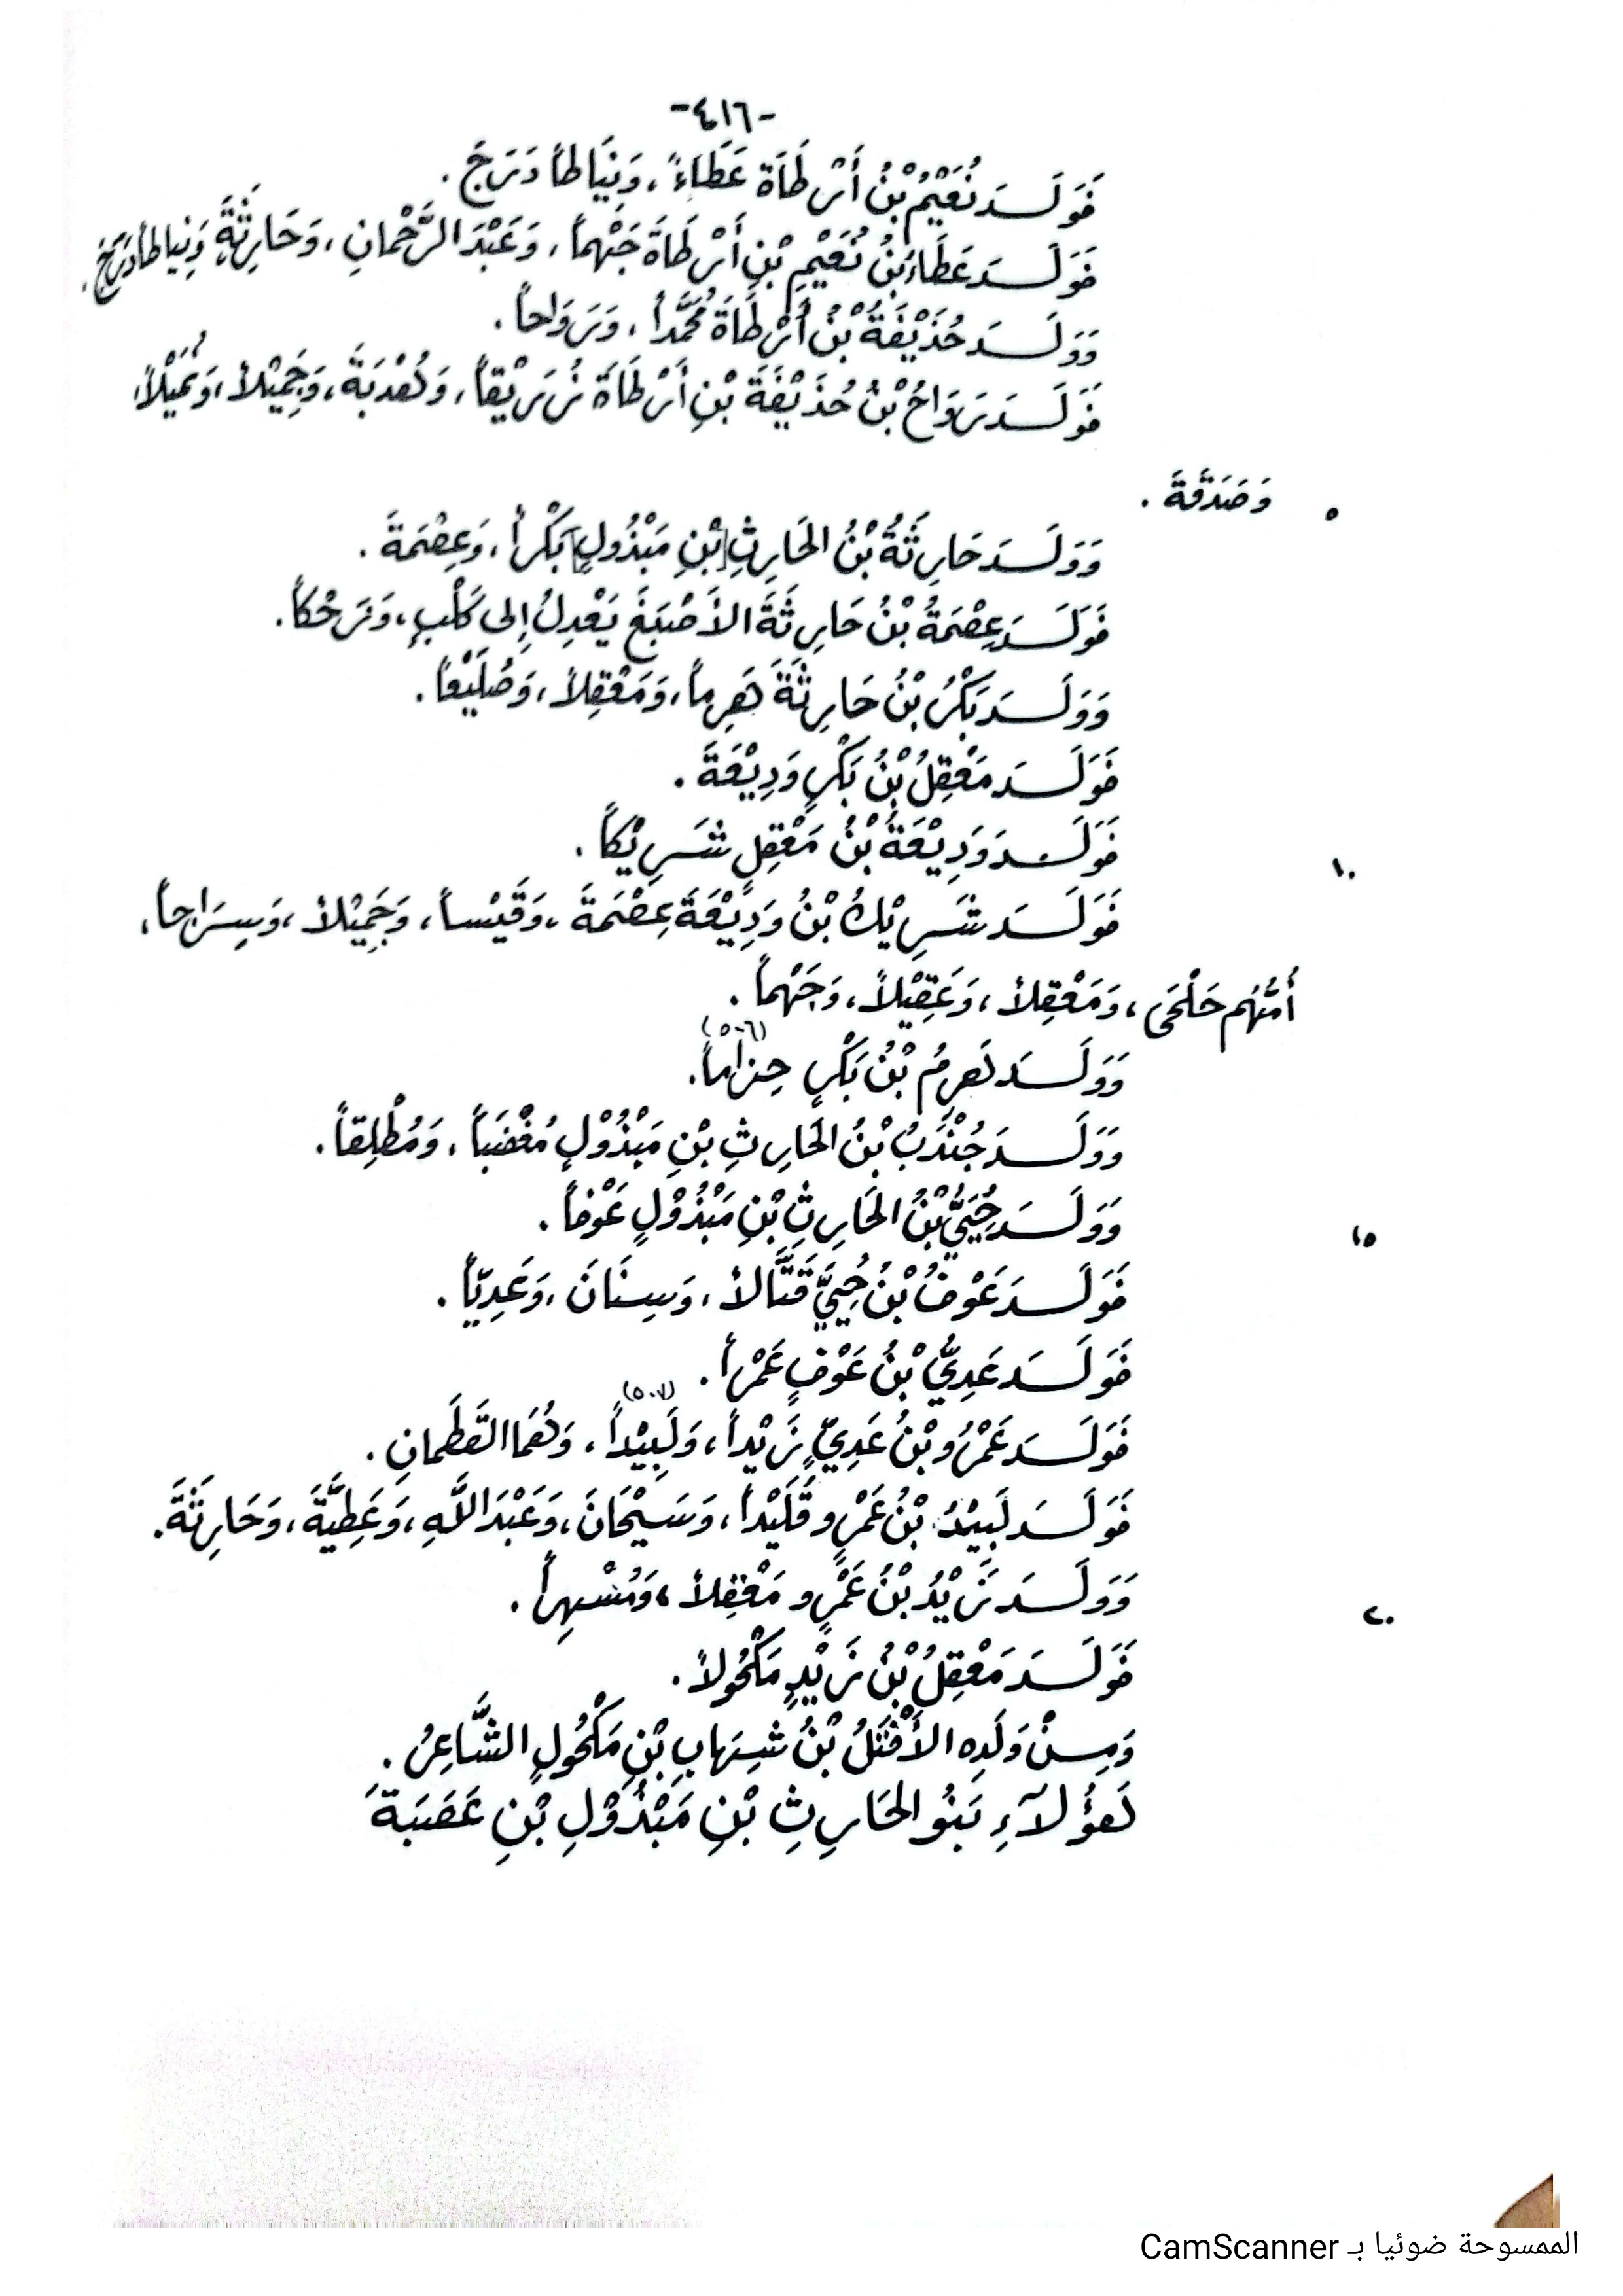 -٤١٦-
فَوَلَدَ نُعَيْمُ بْنُ أَرْطَاَةَ عَطَاءً، وَنِيَاطاً دَرَجَ.
فَوَلَدَ عَطَاءُ بْنُ نُعَيْمِ بْنِ أَرْطَاةَ جَهْماً، وَعَبْدَ الرَّحْمانِ، وَحَارِثَةَ، وَنِياطاً دَرَجَ.
وَوَلَدَ حُذَيْفَةُ بْنُ أَرْطَاةَ مُحَمَّداً، وَرَوَاحاً.
فَوَلَدَ رَوَاحُ بْنُ حُذَيْفَةَ بْنِ أَرْطَاَةَ زُرَيْقاً، وَهُدْبَةَ، وَجَمِيْلاً، وَنُمَيْلاً،
وَصَدَقَةَ. ٥
وَوَلَدَ حَارِثَةُ بْنُ الحَارِثِ [بْنِ مَبْذُولٍ] بَكْراً، وَعِصْمَةَ.
فَوَلَدَ عِصْمَةُ بْنُ حَارِثَةَ الأَصْبَغَ يَعْدِلُ إِلى كَلْبٍ، وَزَحْكاً.
وَوَلَدَ بَكْرُ بْنُ حَارِثَةَ هَرِماً، وَمَعْقِلاً، وَضُلَيْعاً.
فَوَلَدَ مَعْقِلُ بْنُ بَكْرٍ وَدِيْعَةَ.
فَوَلَدَ وَدِيْعَةُ بْنُ مَعْقِلٍ شَرِيْكاً. ١٠
فَوَلَدَ شَرِيْكُ بْنُ وَدِيْعَةَ عِصْمَةَ، وَقَيْساً، وَجَمِيْلاً، وَسِرَاجاً،
أُمُّهُم حَلْحَى، وَمَعْقِلاً، وَعَقِيْلاً، وَجَهْماً.
وَوَلَدَ هَرِمُ بْنُ بَكْرٍ حِزَاماً(٥٠٦).
وَوَلَدَ جُنْدَبُ بْنُ الحَارِثِ بْنِ مَبْذُوْلٍ مُغْضَباً، وَمُطْلِقاً.
وَوَلَدَ حُيَيُّ بْنُ الحَارِثِ بْنِ مَبْذُوْلٍ عَوْفاً. ١٥
فَوَلَدَ عَوْفُ بْنُ حُيَيٍّ قَتَّالاً، وَسِنَانَ، وَعَدِيّاً.
فَوَلَدَ عَدِيُّ بْنُ عَوْفٍ عَمْراً.
فَوَلَدَ عَمْرُو بْنُ عَدِيٍّ زَيْداً، وَلَبِيْداً(٥٠٧)، وَهُمَا القَطَمانِ.
فَوَلَدَ لَبِيْدُ بْنُ عَمْرٍو قَلَيْداً، وَسَيْحَانَ، وَعَبْدَ اللَّهِ، وَعَطِيَّةَ، وَحَارِثَةَ.
وَوَلَدَ زَيْدُ بْنُ عَمْرٍو مَعْقِلاً، وَمُسْهِراً. ٢٠
فَوَلَدَ مَعْقِلُ بْنُ زَيْدٍ مَكْحُولاً.
وَمِنْ وَلَدِهِ الأَقْتَلُ بْنُ شِهَابِ بْنِ مَكْحُولٍ الشَّاعِرُ.
هَؤُلآءِ بَنُو الحَارِثِ بْنِ مَبْذُوْلِ بْنِ عَصَبَةَ
الممسوحة ضوئيا بـ CamScanner